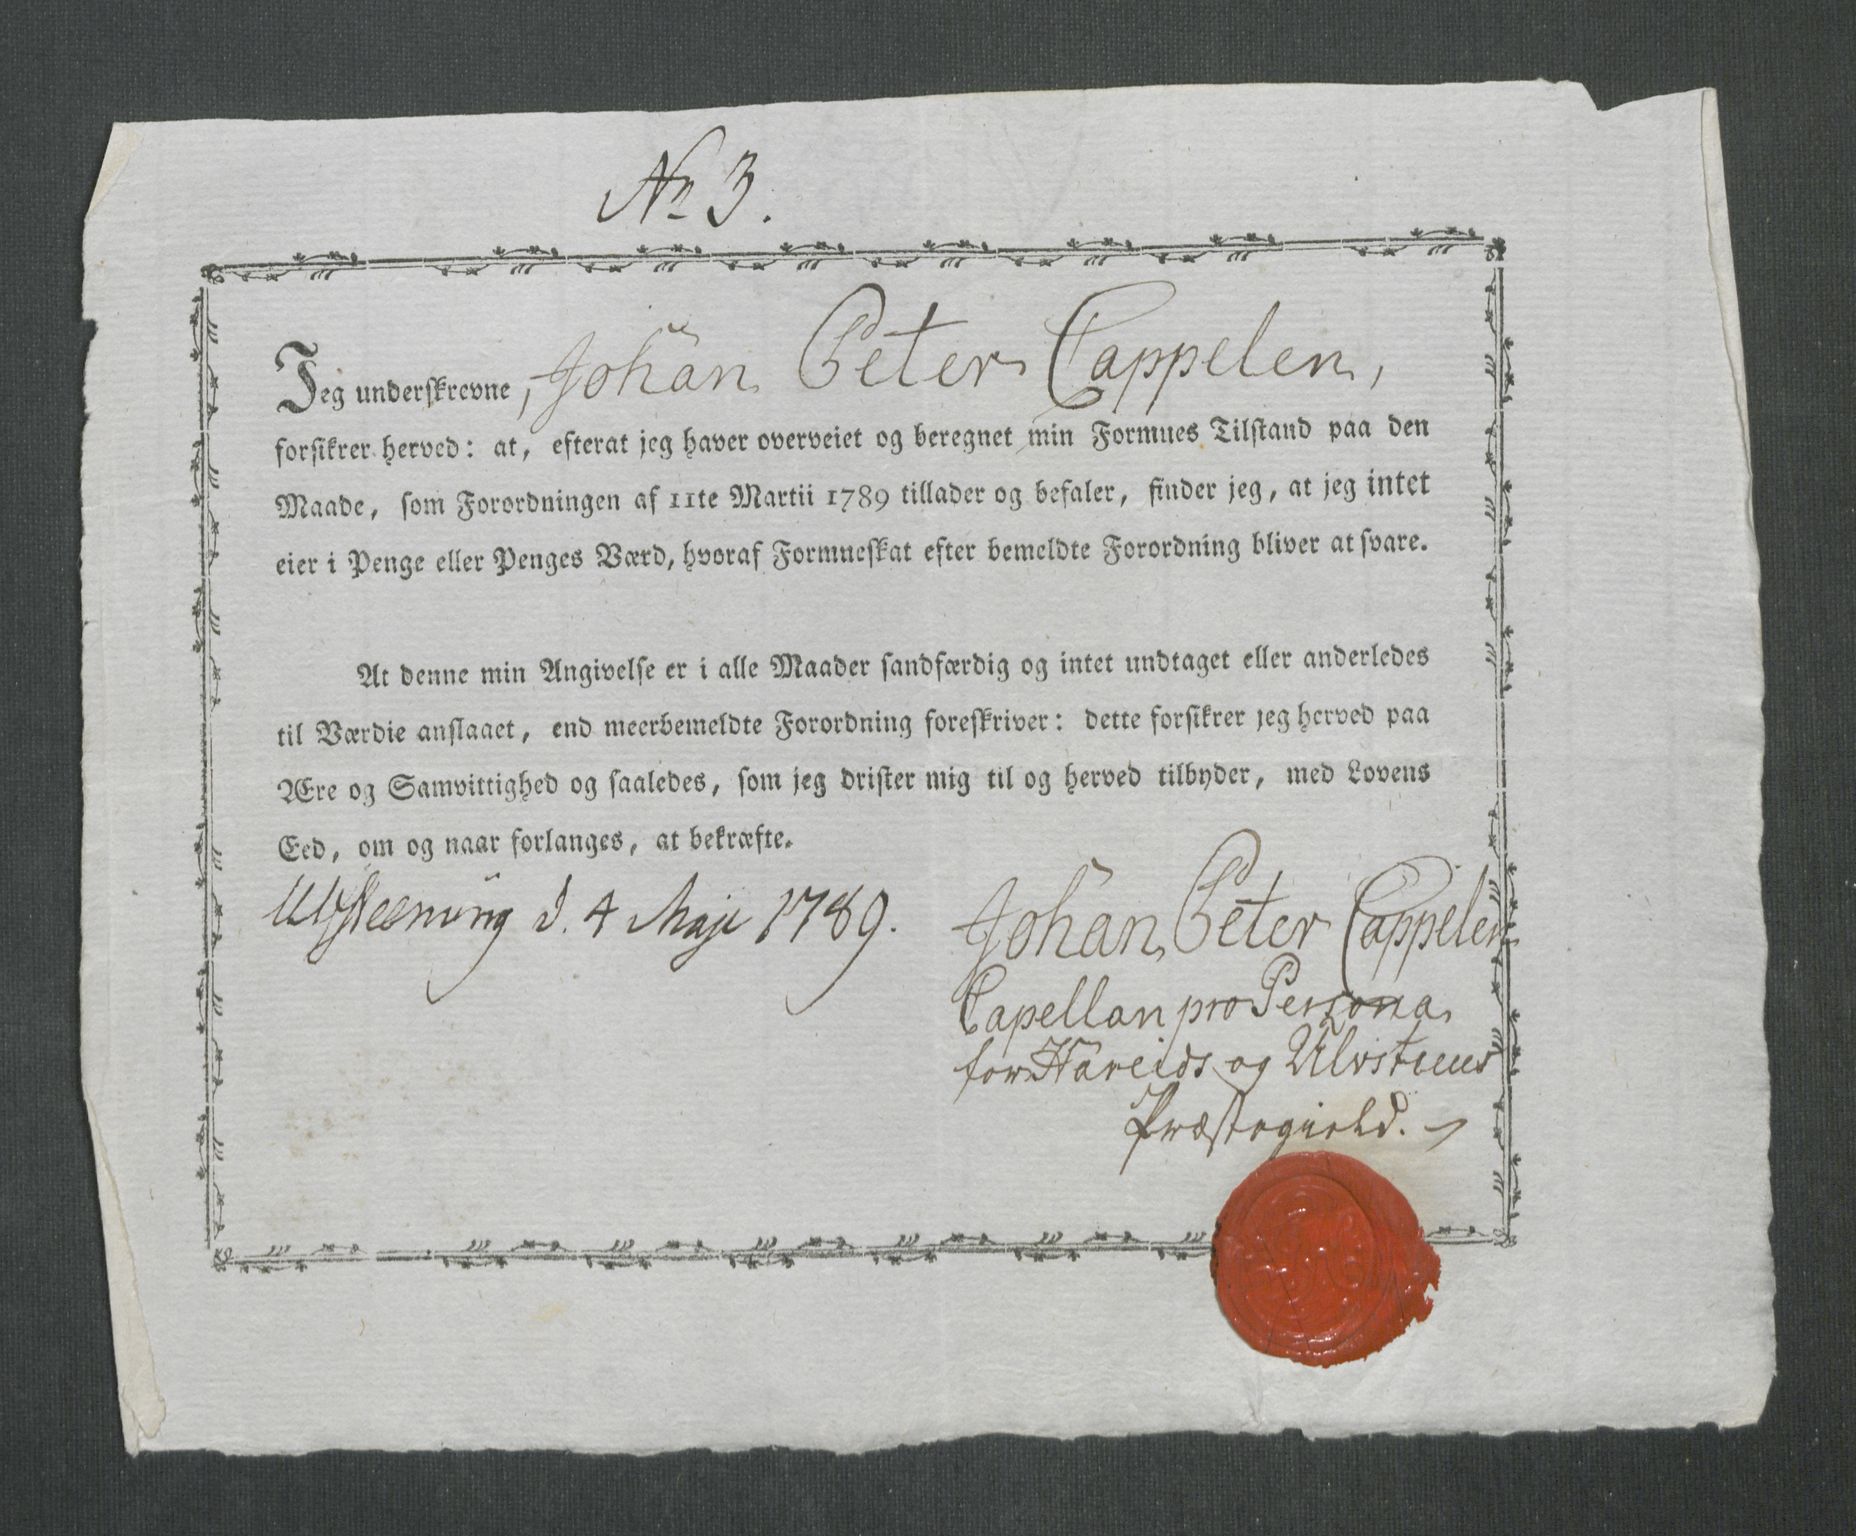 No 3.
Jeg underskrevne, Johan Peter Cappelen,
forsikrer herved: at, efterat jeg haver overveiet og beregnet min Formues Tilstand paa den
Maade, som Forordningen af 11te Martii 1789 tillader og befaler, finder jeg, at jeg intet
eier i Penge eller Penges Værd, hvoraf Formueskat efter bemeldte Forordning bliver at svare.
At denne min Angivelse er i alle Maader sandfærdig og intet undtaget eller anderledes
til Værdie anslaaet, end meerbemeldte Forordning foreskriver: dette forsikrer jeg herved paa
Ære og Samvittighed og saaledes, som jeg drister mig til og herved tilbyder, med Lovens
Eed, om og naar forlanges, at bekræfte.
d. 4 Maji 1789.
Johan Peter Cappelen
Capellan pro Persona
for Hareids og Ulvsteens
Præstegield.